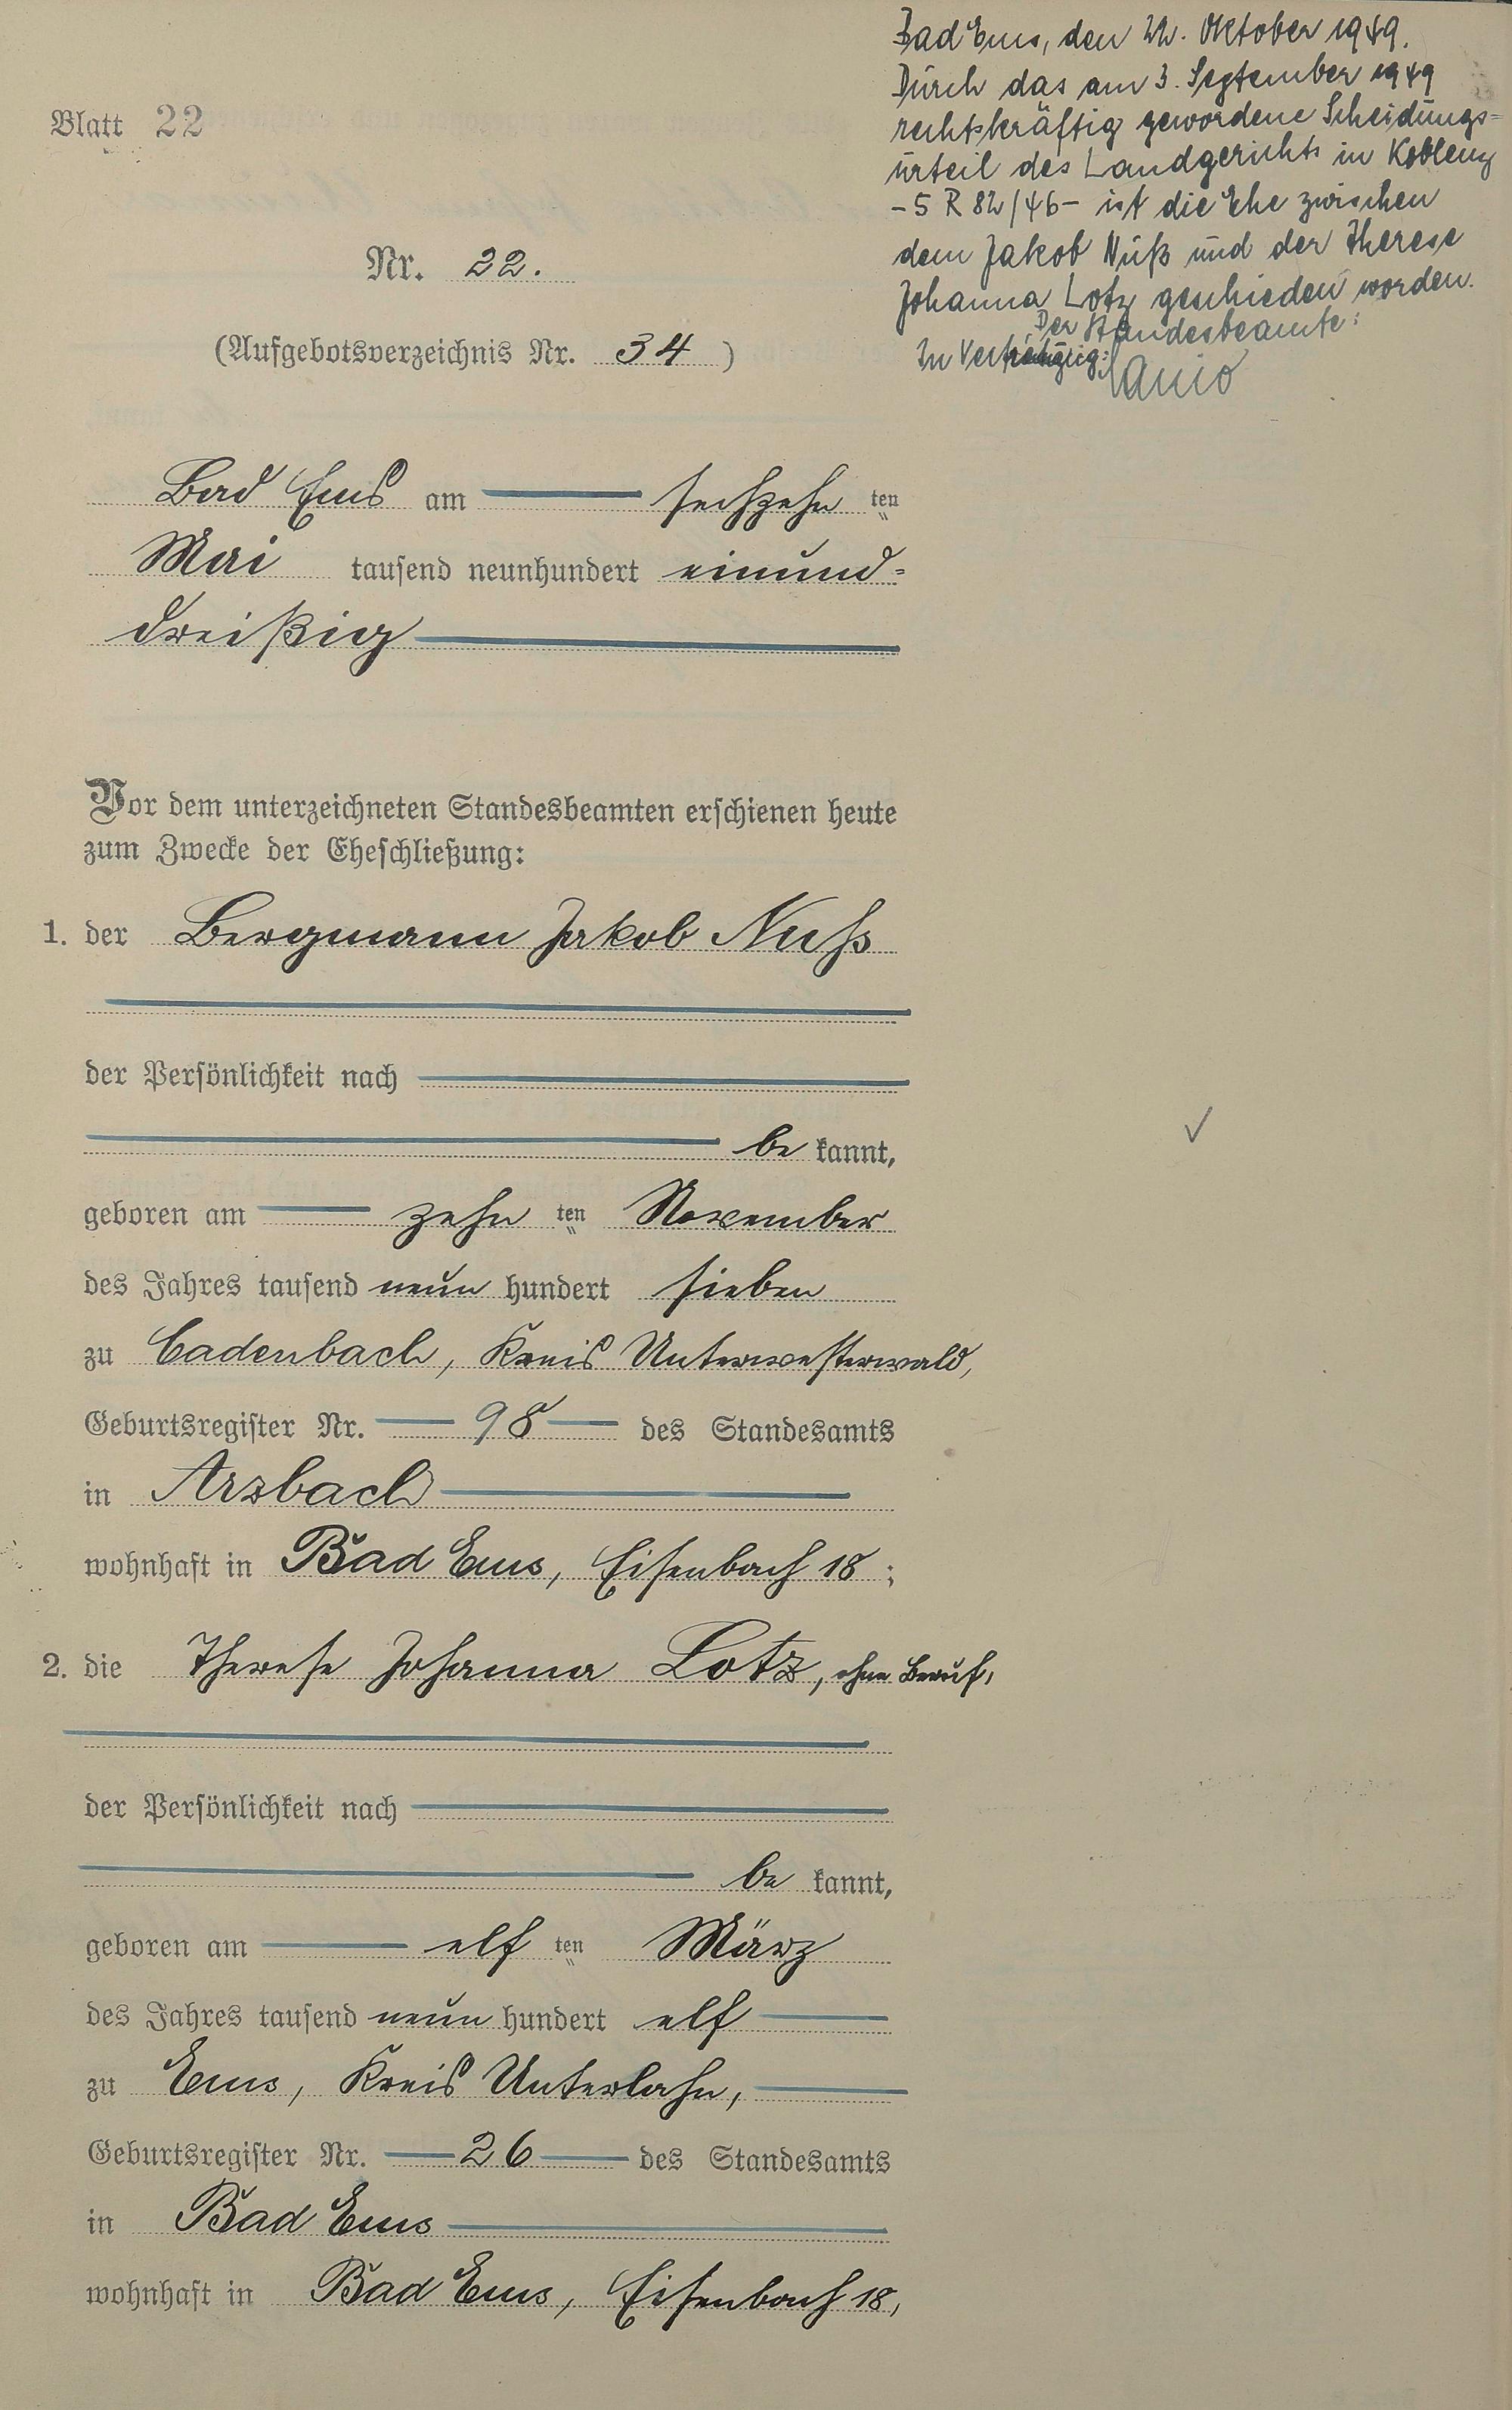 Bad Ems, den 22. Oktober 1949.
Durch das am 3. September 1949
rechtskräftig gewordene Scheidungs=
urteil des Landgerichts in Koblenz
-5 R 82/46- ist die Ehe zwischen
dem Jakob Nuß und der Therese
Johanna Lotz geschieden worden.
Der Standesbeamte:
In Vertretung:
Blatt 22
Nr. 22.
(Aufgebotsverzeichnis Nr. 34 )
Bad Ems am sechzehn ten
Mai tausend neunhundert einund=
dreißig
Vor dem unterzeichneten Standesbeamten erschienen heute
zum Zwecke der Eheschließung:
1. der Bergmann Jakob Nuß
der Persönlichkeit nach
be kannt,
geboren am zehn ten November
des Jahres tausend neun hundert sieben
zu Cadenbach, Kreis Unterwesterwald,
Geburtsregister Nr. 98 des Standesamts
in Arzbach
wohnhaft in Bad Ems, Eisenbach 18 ;
2. die Therese Johanna Lotz, ohne Beruf,
der Persönlichkeit nach
be kannt,
geboren am elf ten März
des Jahres tausend neun hundert elf
zu Ems, Kreis Unterlahn,
Geburtsregister Nr. 26 des Standesamts
in Bad Ems
wohnhaft in Bad Ems, Eisenbach 18,